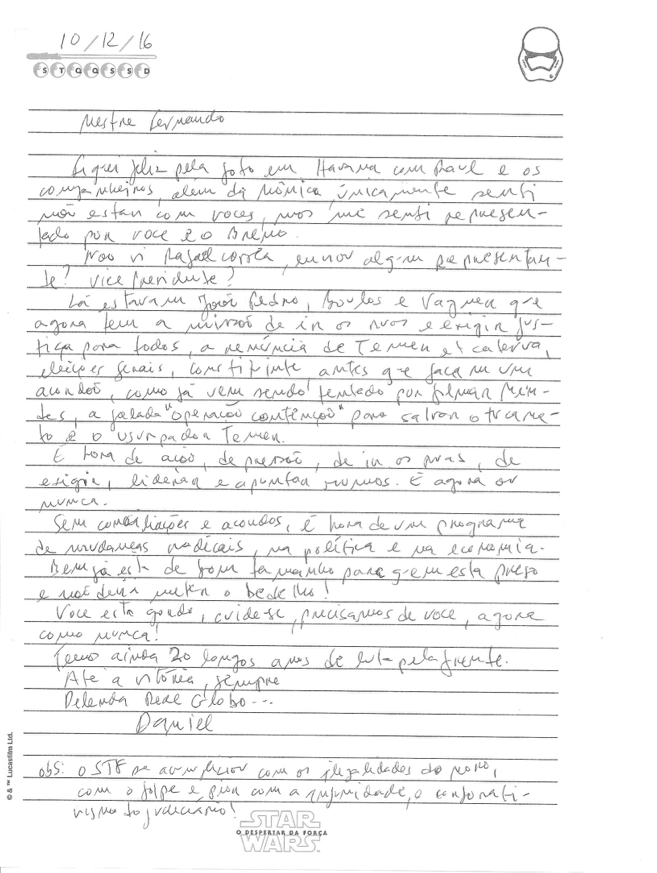 10/12/16
S T Q Q S S D
Mestre Fernando
Fiquei feliz pela foto em Havana com Raul e os
companheiros, além da Mônica, únicamente senti
não estar com voces, mas me senti represen-
tado por voce e o Breno.
Nao vi Rafael Correa, enviou algum representan-
te? Vice Presidente?
Lá estavam João Pedro, Boulos e Vagner que
agora tem a missão de ir as ruas e exigir jus-
tiça para todos, a renúncia de Temer et caterva,
eleições gerais, constituinte antes que façam um
acordão, como já vem sendo tentado por Gilmar Men-
des, a falada "operação contenção" para salvar o tucana-
to e o usurpador Temer.
É hora de ação, de pressão, de ir as ruas, de
exigir, liderar e apontar rumos. É agora ou
nunca.
Sem conciliações e acordos, é hora de um programa
de mudanças radicais, na política e na economia.
Bem já está de bom tamanho para quem esta preso
e não devia meter o bedelho!
Voce esta gordo, cuide-se, precisamos de voce, agora
como nunca!
Temos ainda 20 longos anos de luta pela frente.
Até a vitória, sempre
Delenda Rede Globo...
Daniel
obs: o STF se acumpliciou com as ilegalidades do
com o golpe e pior com a impunidade, o corporati-
vismo do judiciário!
STAR
O DESPERTAR DA FORÇA
WARS
© & ™ Lucasfilm Ltd.